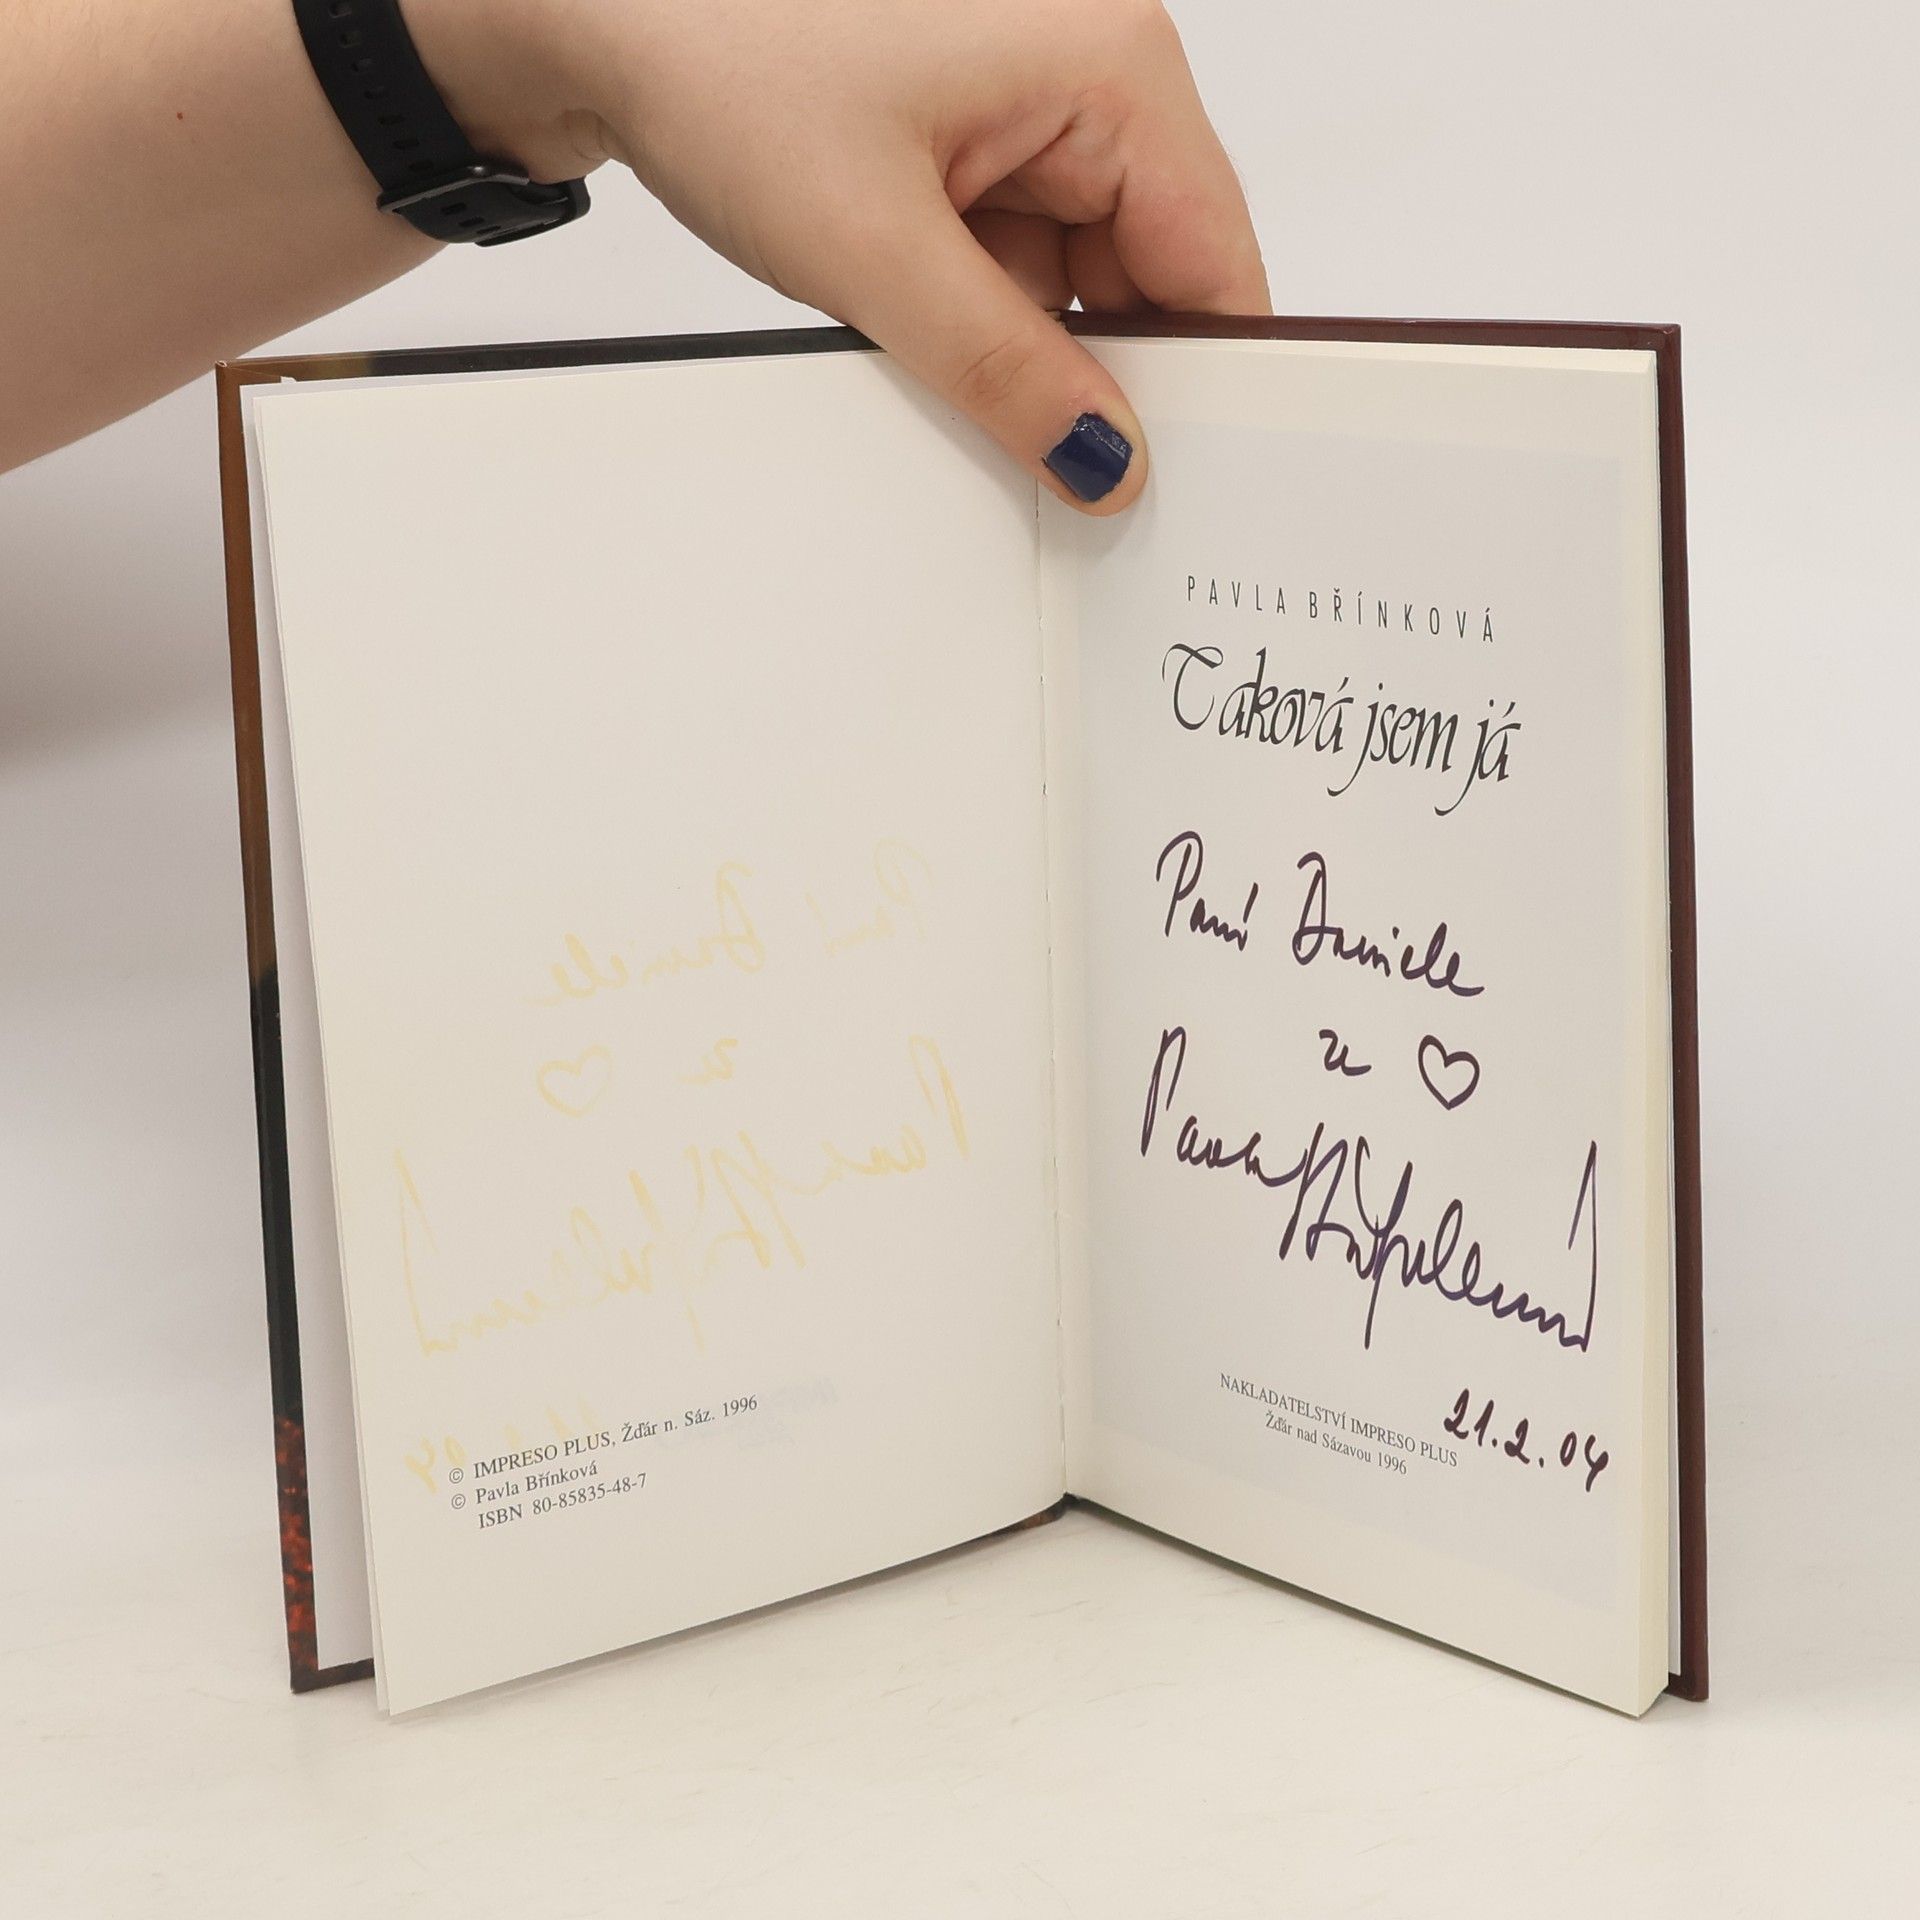 © IMPRESO PLUS, Žďár n. Sáz. 1996
© Pavla Břínková
ISBN 80-85835-48-7
PAVLA BŘÍNKOVÁ
Taková jsem já
Paní Daniele
ze ♡
Pavla Břínková
NAKLADATELSTVÍ IMPRESO PLUS
Žďár nad Sázavou 1996
21.2.04